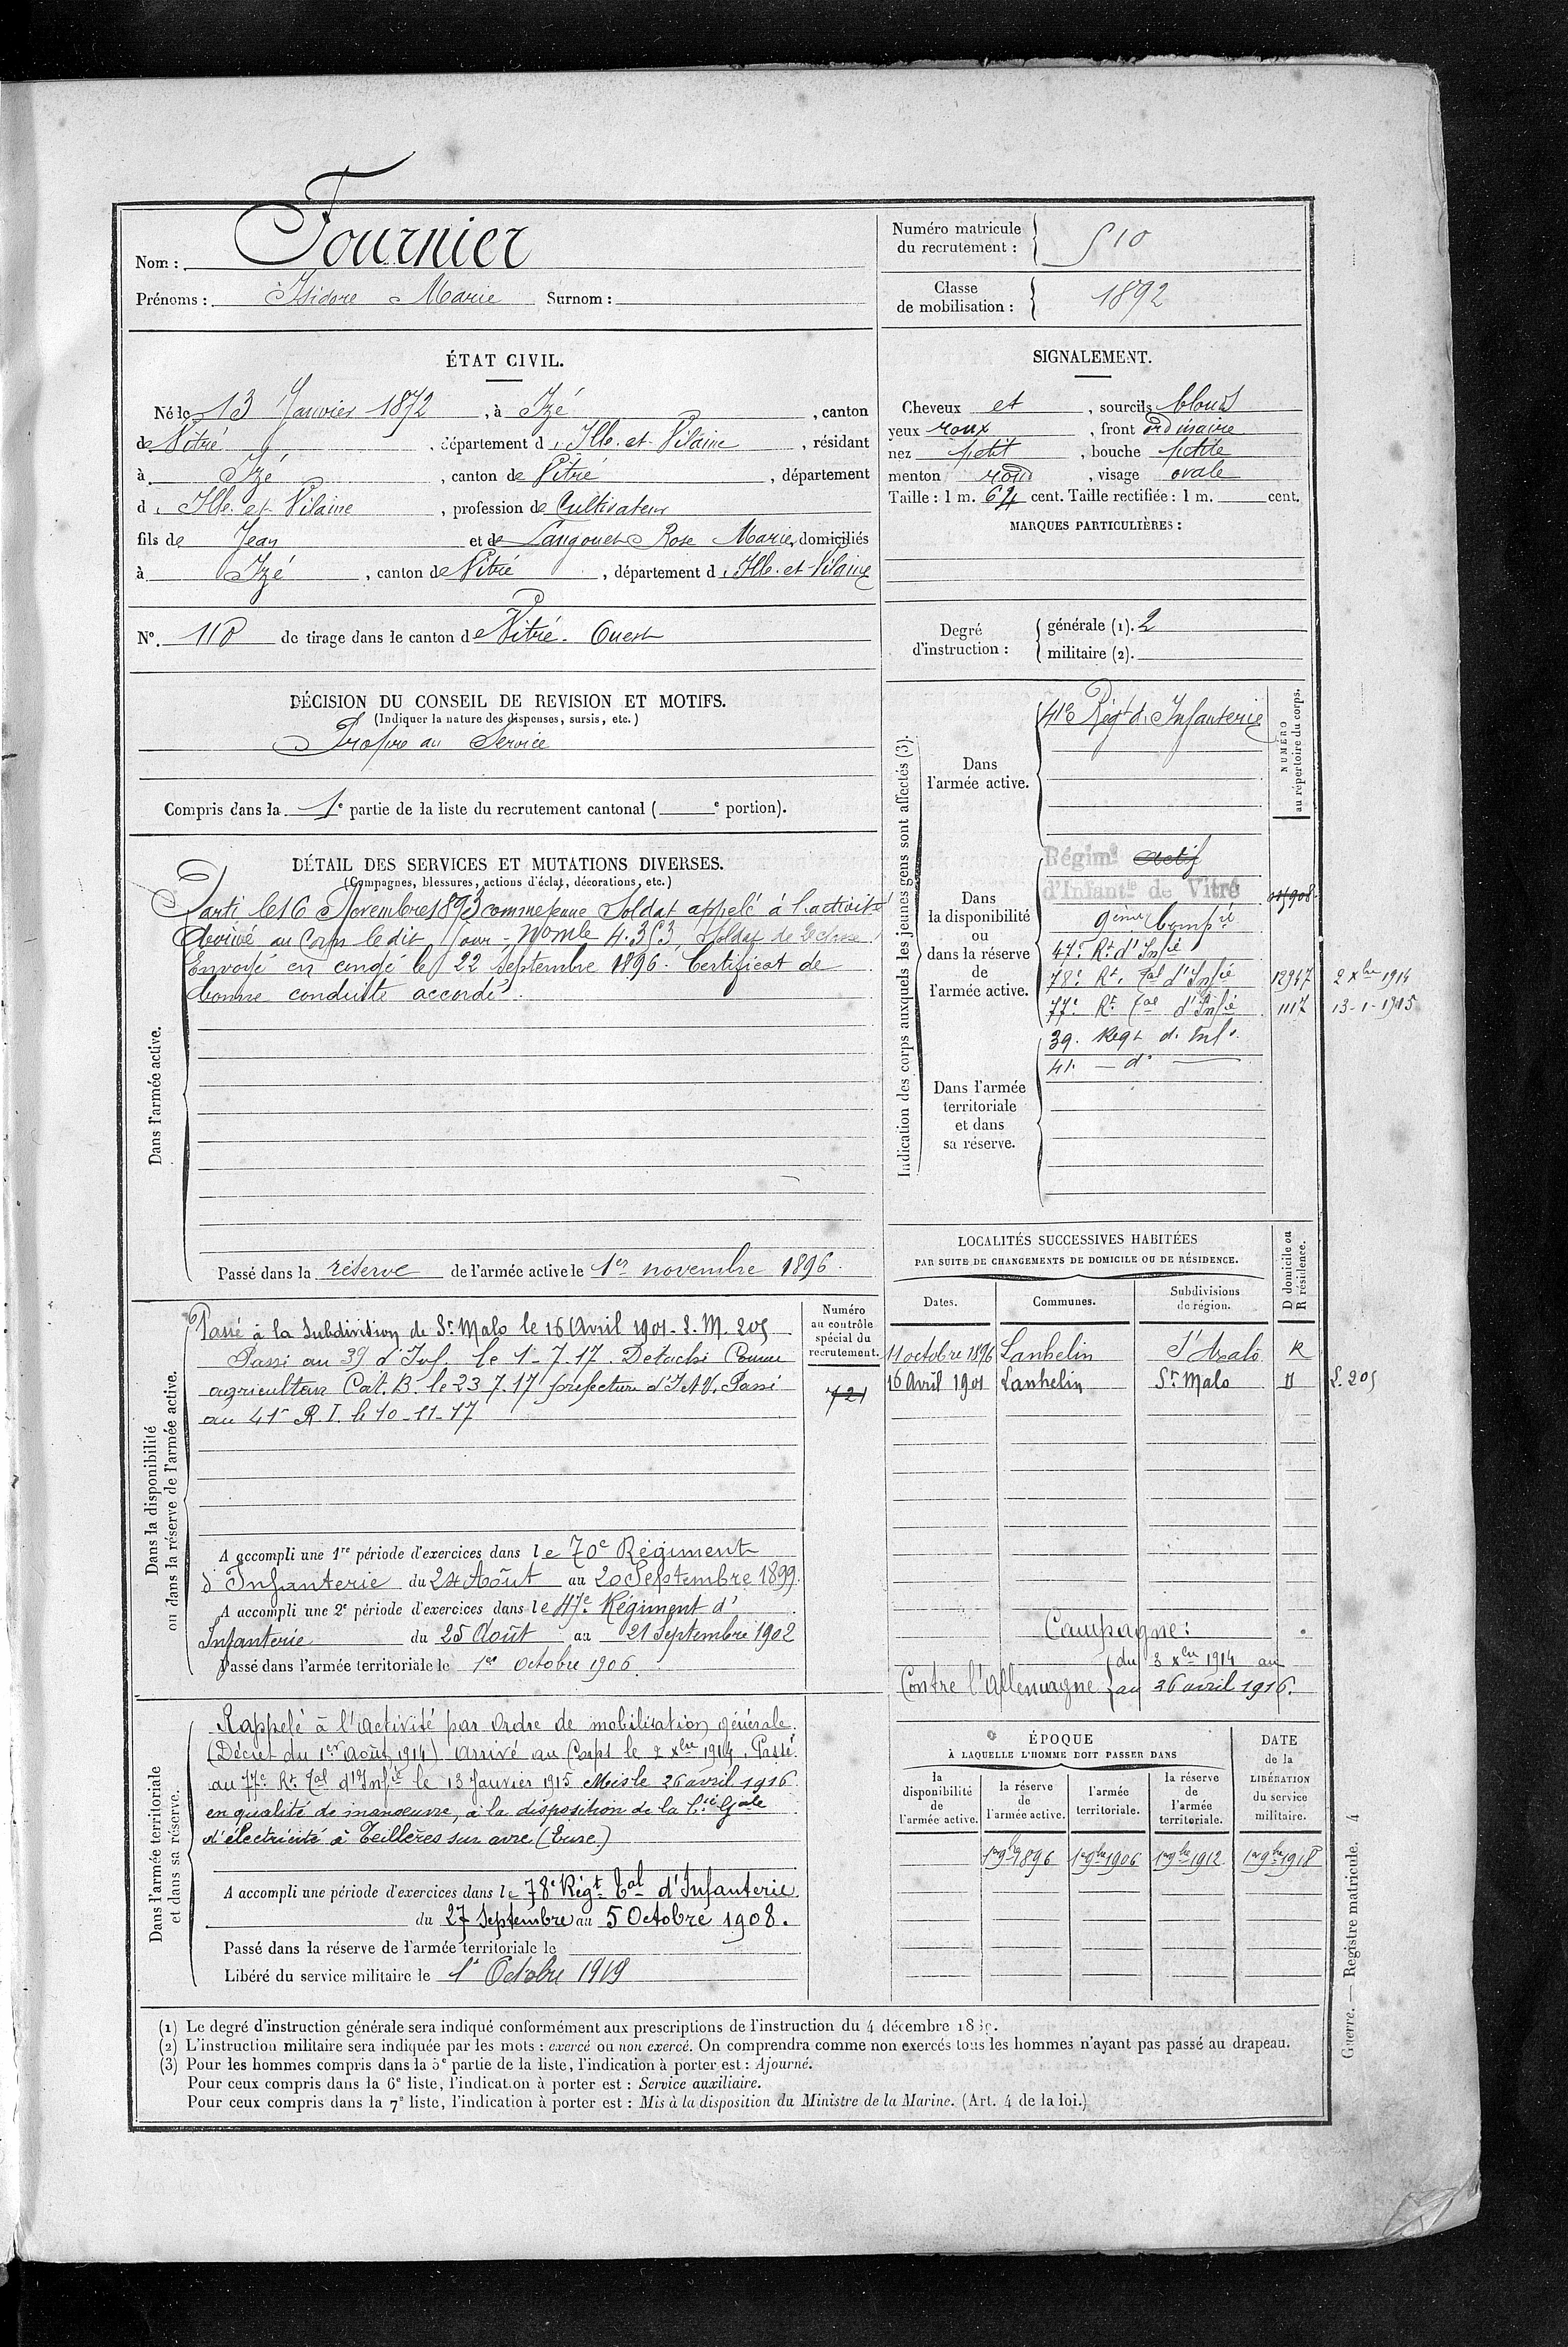 Fournier
Nom :
Prénoms : Isidore Marie Surnom :
Numéro matricule
du recrutement : 510
Classe
de mobilisation : 1892
ÉTAT CIVIL.
Né le 13 Janvier 1872, à Izé, canton
de Vitré, département d'Ille-et-Vilaine, résidant
à Izé, canton de Vitré, département
d'Ille-et-Vilaine, profession de Cultivateur
fils de Jean et de Langouet Rose Marie, domiciliés
à Izé, canton de Vitré, département d'Ille-et-Vilaine
N° 118 de tirage dans le canton de Vitré-Ouest
SIGNALEMENT.
Cheveux et, sourcils blonds
yeux roux, front ordinaire
nez petit, bouche petite
menton rond, visage ovale
Taille : 1 m. 64 cent. Taille rectifiée : 1 m. cent.
MARQUES PARTICULIÈRES :
Degré
d'instruction :
générale (1). 2
militaire (2).
DÉCISION DU CONSEIL DE REVISION ET MOTIFS.
(Indiquer la nature des dispenses, sursis, etc.)
Propre au Service
Compris dans la 1e partie de la liste du recrutement cantonal ( e portion).
DÉTAIL DES SERVICES ET MUTATIONS DIVERSES.
(Campagnes, blessures, actions d'éclat, décorations, etc.)
Dans l'armée active.
Parti le 16 Novembre 1893 comme jeune Soldat appelé à l'activité
Arrivé au Corps le dit Jour - No mle 4.353, Soldat de 2e classe
Envoyé en congé le 22 septembre 1896. Certificat de
bonne conduite accordé.
Passé dans la réserve de l'armée active le 1er novembre 1896.
Indication des corps auxquels les jeunes gens sont affectés (3).
NUMÉRO
au répertoire du corps.
Dans
l'armée active.
41e Régt d'Infanterie
Dans
la disponibilité
ou
dans la réserve
de
l'armée active.
Régimt Actif
d'Infantie de Vitré
9ème Compie
47e Rt d'Infie
78e Rt Tal d'Infie 12947 2 Xbre 1914
77e Rt Tal d'Infie 1117 13-1-1915
Dans l'armée
territoriale
et dans
sa réserve.
39. Regt d. Inf.
41. — do —
LOCALITÉS SUCCESSIVES HABITÉES
PAR SUITE DE CHANGEMENTS DE DOMICILE OU DE RÉSIDENCE.
Dates. Communes. Subdivisions
de région. D domicile ou
R résidence.
11 octobre 1896 Lanhelin St Malo R
16 Avril 1901 Lanhelin St Malo D S. 205
Dans la disponibilité
ou dans la réserve de l'armée active.
Numéro
au contrôle
spécial du
recrutement.
721
Passé à la Subdivision de St Malo le 16 Avril 1901 - S. M. 205
Passé au 39 d'Inf. le 1-7-17. Détaché Comme
agriculteur Cat. B. le 23.7.17 préfecture d'I et V. Passé
au 41e R.I. le 10-11-17
A accompli une 1re période d'exercices dans le 70e Régiment
d'Infanterie du 24 Août au 20 Septembre 1899.
A accompli une 2e période d'exercices dans le 47e Régiment d'
Infanterie du 25 Août au 21 Septembre 1902
Passé dans l'armée territoriale le 1er octobre 1906.
Campagne :
Contre l'Allemagne du 3 Xbre 1914 au
au 26 avril 1916.
Dans l'armée territoriale
et dans sa réserve.
Rappelé à l'activité par ordre de mobilisation générale.
(Décret du 1er Août 1914) arrivé au Corps le 2 Xbre 1914. Passé
au 77e Rt Tal d'Infie le 13 Janvier 1915 Mis le 26 avril 1916
en qualité de manœuvre, à la disposition de la Cie Gale
d'électricité à Teillères sur avre (Eure.)
A accompli une période d'exercices dans le 78e Régt Tal d'Infanterie.
du 27 Septembre au 5 Octobre 1908.
Passé dans la réserve de l'armée territoriale le
Libéré du service militaire le 1er Octobre 1919
ÉPOQUE
À LAQUELLE L'HOMME DOIT PASSER DANS
la
disponibilité
de
l'armée active.
la réserve
de
l'armée active.
l'armée
territoriale.
la réserve
de
l'armée
territoriale.
DATE
de la
LIBÉRATION
du service
militaire.
1er 9bre 1896 1er 9bre 1906 1er 9bre 1912 1er 9bre 1918
(1) Le degré d'instruction générale sera indiqué conformément aux prescriptions de l'instruction du 4 décembre
(2) L'instruction militaire sera indiquée par les mots : exercé ou non exercé. On comprendra comme non exercés tous les hommes n'ayant pas passé au drapeau.
(3) Pour les hommes compris dans la 5e partie de la liste, l'indication à porter est : Ajourné.
Pour ceux compris dans la 6e liste, l'indication à porter est : Service auxiliaire.
Pour ceux compris dans la 7e liste, l'indication à porter est : Mis à la disposition du Ministre de la Marine. (Art. 4 de la loi.)
Guerre. — Registre matricule. 4